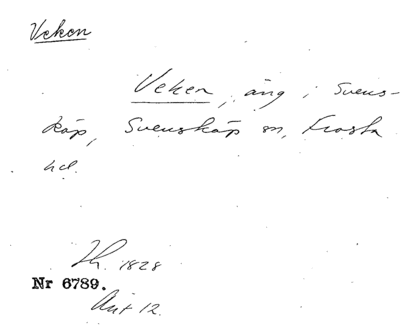 Veken
Veken, äng i Svens-
köp, Svensköp sn, Frosta
hd.
Th. 1828
Nr 6789.
Avt 12.